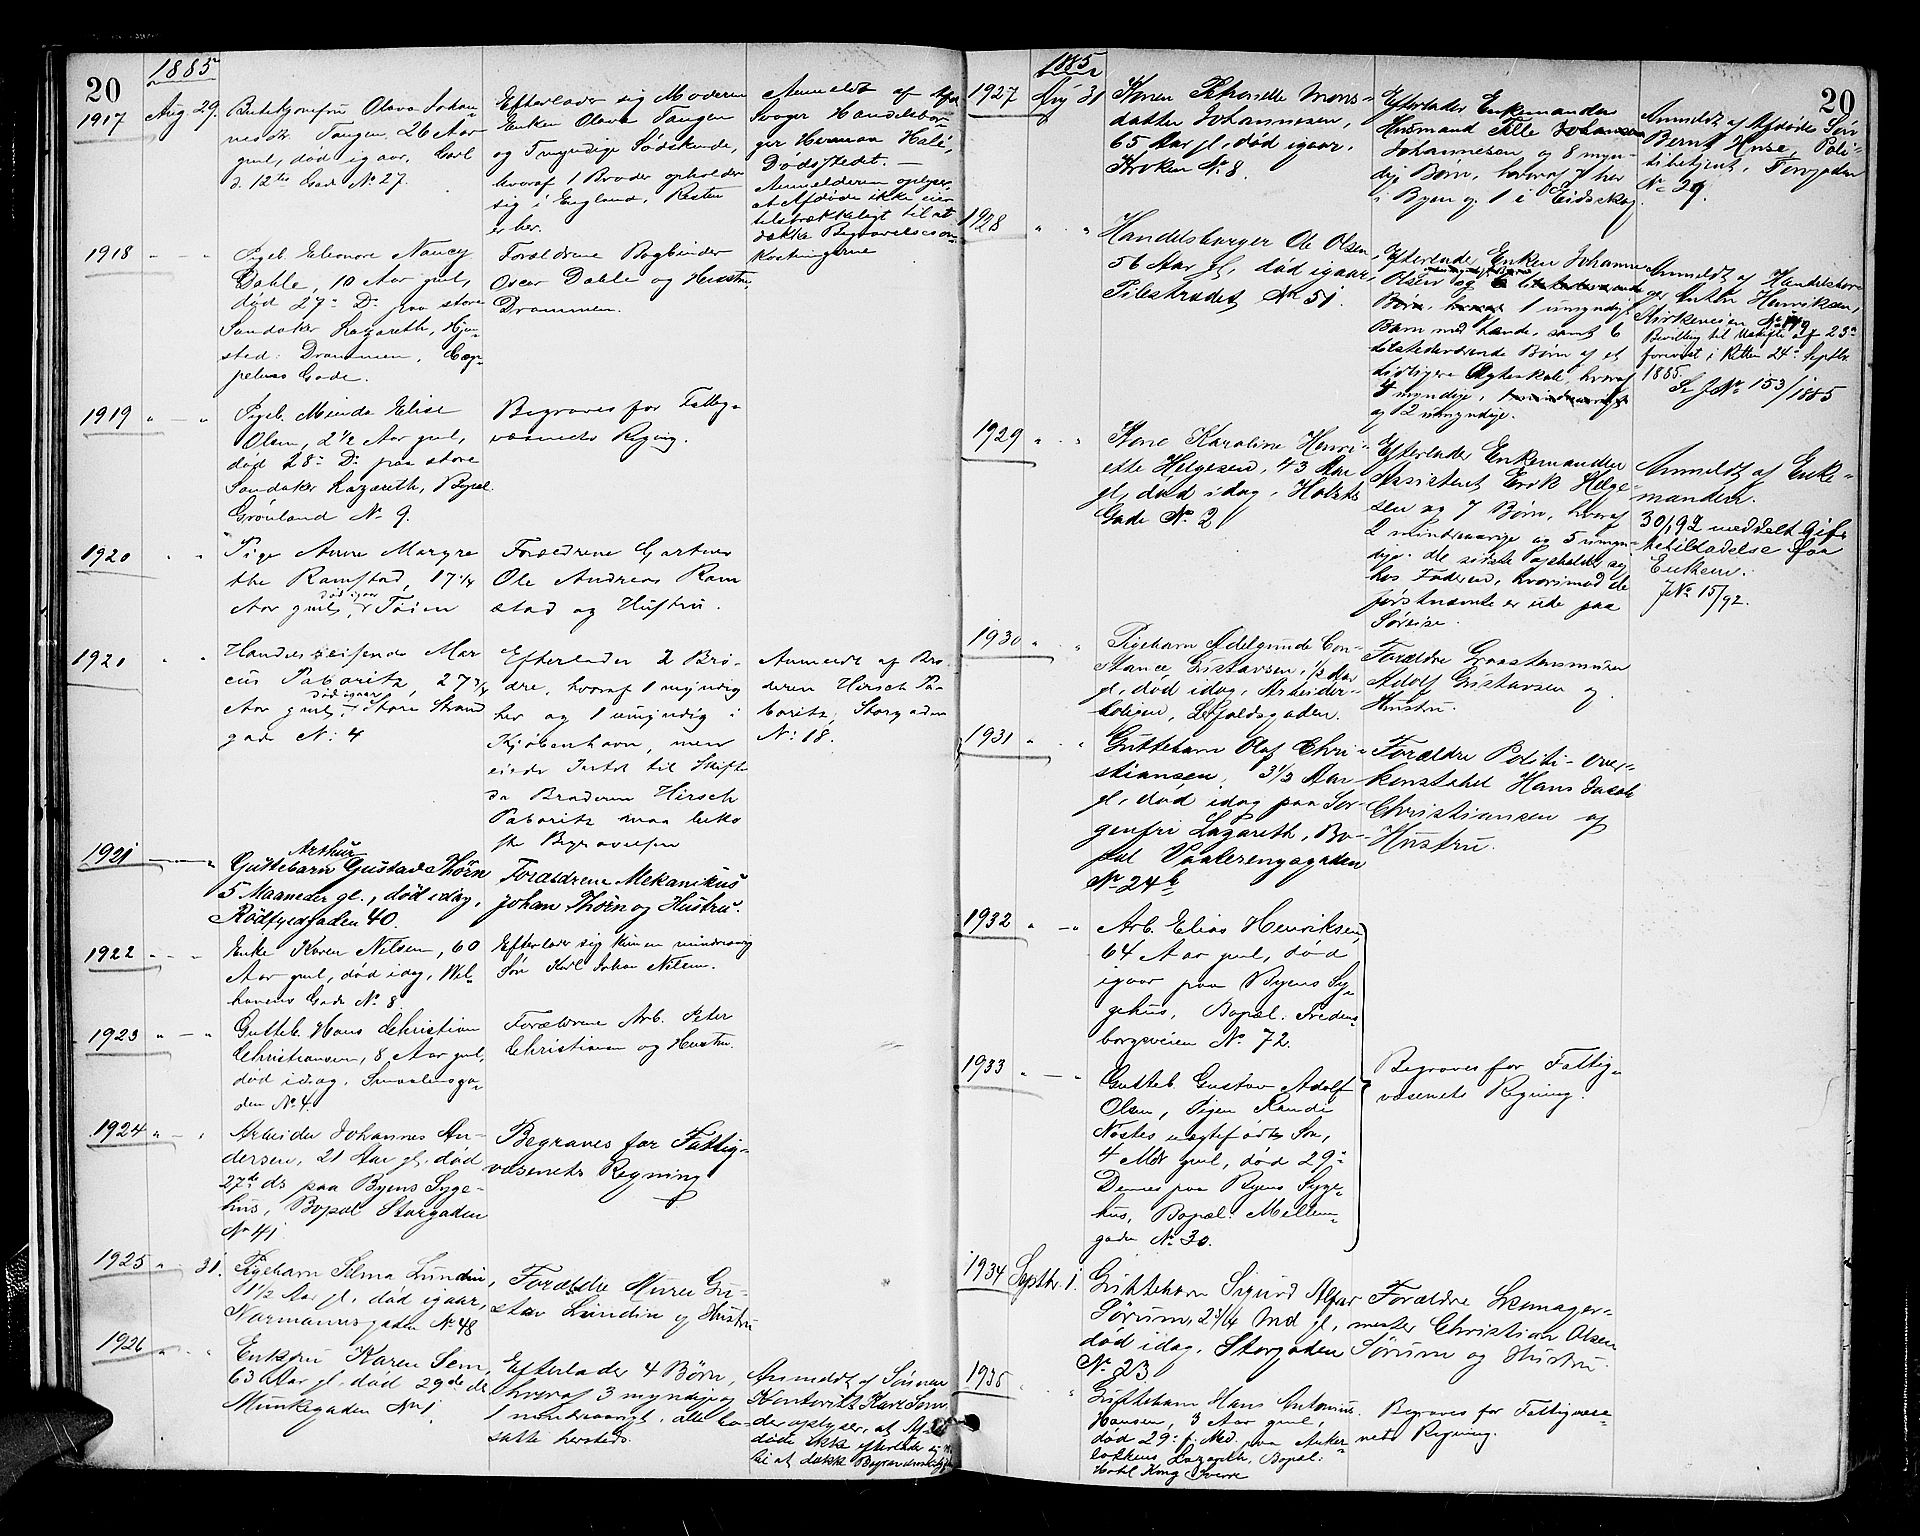 20
1885
1917
Aug 29.
Butikjomfru Olava Johan-
nesdtr Tangen, 26 Aar
gml, død igaar, Carl
d. 12te Gade No 27.
Efterlader sig Moderen
Enken Olava Tangen
og Søskende,
hvoraf 1 Broder opholder
sig i England, Resten
er her.
Anmeldt af
Svoger Handelsbor-
ger Herman
Dødsstedet. —
Anmelderen oplyser,
at Afdøde ikke eier
tilstrækkeligt til at
dække Begravelsesom-
kostningerne
1918
" — "
Pigeb. Eleonore Nancy
Dahle, 10 Aar gml,
død 27de Ds paa store
Sandaker Lazareth, Hjem-
sted: Drammen, Cap-
pelens Gade.
Forældrene Bogbinder
Oscar Dahle og Hustru,
Drammen.
1919
" — "
Pigeb. Minda Elise
Olsen, 2 1/2 Aar gml,
død 28de Ds paa store
Sandaker Lazareth, Bopæl
Grønland No 9.
Begraves for Fattig-
væsenets Regning.
1920
" "
Pige Anne Margre
the Ramstad, 17 1/4
Aar gml, død igaar, Tøien
Forældrene Gartner
Ole Andreas Ram
stad og Hustru.
1921
" "
Handelsreisende Mar
cus Paboritz, 27 3/4
Aar gml, død igaar, Store Strand
gade No 4
Efterlader 2 Brø-
dre, hvoraf 1 myndig
her og 1 umyndig i
Kjøbenhavn, men
eiede Intet til Skifte
da Broderen Hirsch
Paboritz maa beko
ste Begravelsen
Anmeldt af Bro
deren Hirsch Pa-
boritz, Storgaden
No 18.
1921
— "
Guttebarn Arthur Gustad Thörn
5 Maaneder gl., død idag,
Rødfyldgaden 40.
Forældrene Mekanikus
Johan Thörn og Hustru.
1922
" — "
Enke Karen Nilsen, 60
Aar gml, død idag, Wel-
havens Gade No 8
Efterlader sig kun en mindreaarig
Søn Karl Johan Nilsen.
1923
" — "
Gutteb. Hans Christian
Christiansen, 8 Aar gml,
død idag, Smaalensga-
den No 4.
Forældrene Arb. Peter
Christiansen og Hustru.
1924
" — "
Arbeider Johannes An-
dersen, 21 Aar gl, død
27de ds paa Byens Syge-
hus, Bopæl Storgaden
No 41
Begraves for Fattig-
væsenets Regning
1925
" 31.
Pigebarn Selma Lundin,
1 1/2 Aar gl, død igaar,
Normannsgaden No 48
Forældre Murer Gu-
stav Lundin og Hustru
1926
" "
Enkefru Karen Sem,
63 Aar gl, død 29de ds
Munkegaden No 1,
Efterlader 4 Børn,
hvoraf 3 myndige og
1 mindreaarigt, alle bo-
satte hersteds.
Anmeldt af Sønnen
Kontorist Karl Sem,
der oplyser, at Af-
døde ikke efterlader sig
til at dække
20
1885
1927
Aug 31
Konen Mons-
datter Johannesen,
65 Aar gl, død igaar,
Kroken No 8.
Efterlader Enkemanden
Husmand Johannesen
Johannesen, og 8 myn-
dige Børn, hvoraf 7 her
i Byen og 1 i Eidskog
Anmeldt af Afdødes Søn
Bernt Huse, Poli-
tibetjent, Torvgaden
No 29.
1928
" "
Handelsborger Ole Olsen,
56 Aar gl, død igaar,
Pilestrædet No 51.
Efterlader Enken Johanne
Olsen og
Børn, hvoraf 1 umyndigt
Barn med hende, samt 6
tilstedeværende Børn af et
tidligere Ægteskab, hvoraf
4 myndige,
og 2 umyndige.
Anmeldt af Handelsbor-
ger Anton Henriksen,
Kirkeveien
Bevilling til Uskifte af 23de
forevist i Retten 24de Septbr
1885.
Se JNo 153/1885
1929
" "
Kone Karoline Henri-
ette Helgesen, 43 Aar
gl, død idag, Holsts
Gade No 2
Efterlader Enkemanden
Assistent Erik Helge-
sen og 7 Børn, hvoraf
2 mindreaarige og 5 umyn-
dige. De sidste opholder sig
hos Faderen, hvorimod de
førstnævnte er ude paa
Søreise.
Anmeldt af Enke-
manden.
30/1 92 meddelt Gif-
tetilladelse paa
Enkem.
JNo 15/92.
1930
" "
Pigebarn Adelgunde Con-
stance Gustavsen, 1/2 Aar
gl, død idag, Arbeider-
boligen,
Forældre Graastensmurer
Adolf Gustavsen og
Hustru.
1931
" "
Guttebarn Olaf Chri-
stiansen, 3 1/2 Aar
gl, død idag paa Sor-
genfri Lazareth, Bo-
pæl Vaalerengagaden
No 24b
Forældre Politi-over-
konstabel Hans Jacob
Christiansen og
Hustru.
1932
" — "
Arb. Elias Henriksen,
64 Aar gml, død
igaar paa Byens Sy-
gehus, Bopæl: Fredens-
borgveien No 72.
1933
" — "
Gutteb. Gustav Adolf
Olsen, Pigen Randi
Nostes uægtefødte Søn,
4 Mdr gml, død 29de
Dennes paa Byens Syge-
hus, Bopæl: Mellem-
gaden No 30.
Begraves for Fattig-
væsenets Regning.
1934
Septbr. 1.
Guttebarn Sigurd Alfar
Sørum, 2 3/4 Md gl,
død idag, Storgaden
No 23
Forældre Skomager-
mester Christian Olsen
Sørum og Hustru.
1935
"
Guttebarn Hans Antonius
Hansen, 3 Aar gml,
død 29de f. Md. paa Anker-
løkkens Lazareth, Bopæl:
Hotel Kong Sverre
Begraves for Fattigvæse-
nets Regning.